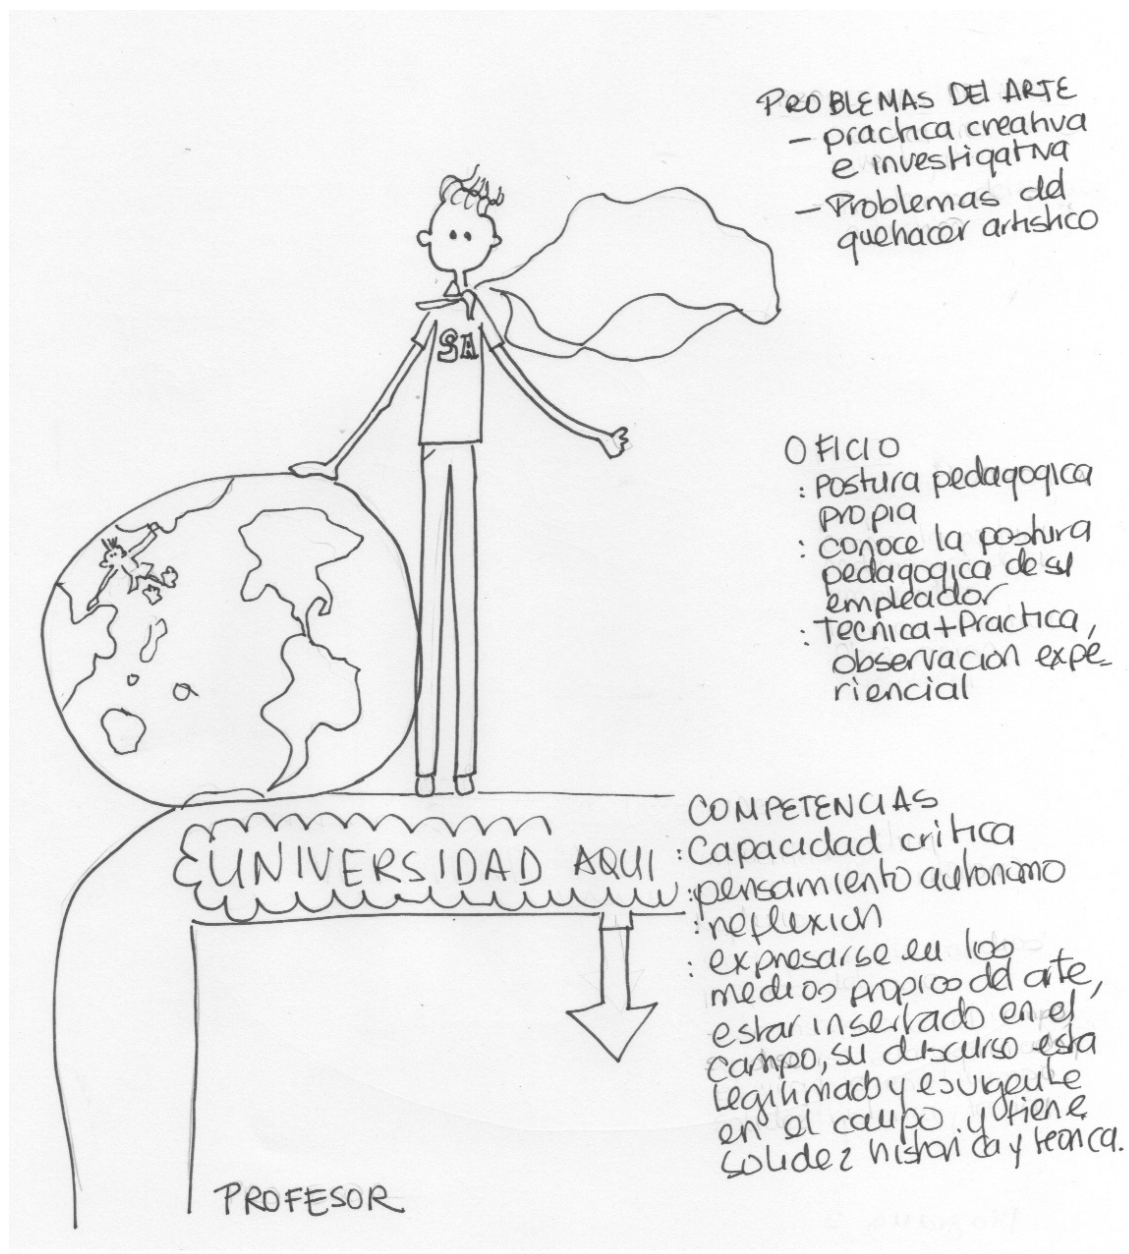 PROBLEMAS DEl ARTE
- practica creativa
e investigativa
- Problemas del
quehacer artistico
SA
OFICIO
: Postura pedagogica
propia
: conoce la postura
pedagogica de su
empleador
: Tecnica + Practica,
observacion expe-
riencial
UNIVERSIDAD AQUI
COMPETENCIAS
: Capacidad critica
: pensamiento autonomo
: reflexion
: expresarse en los
medios propios del arte,
estar insertado en el
campo, su discurso esta
legitimado y es vigente
en el campo y tiene
solidez historica y teorica.
PROFESOR